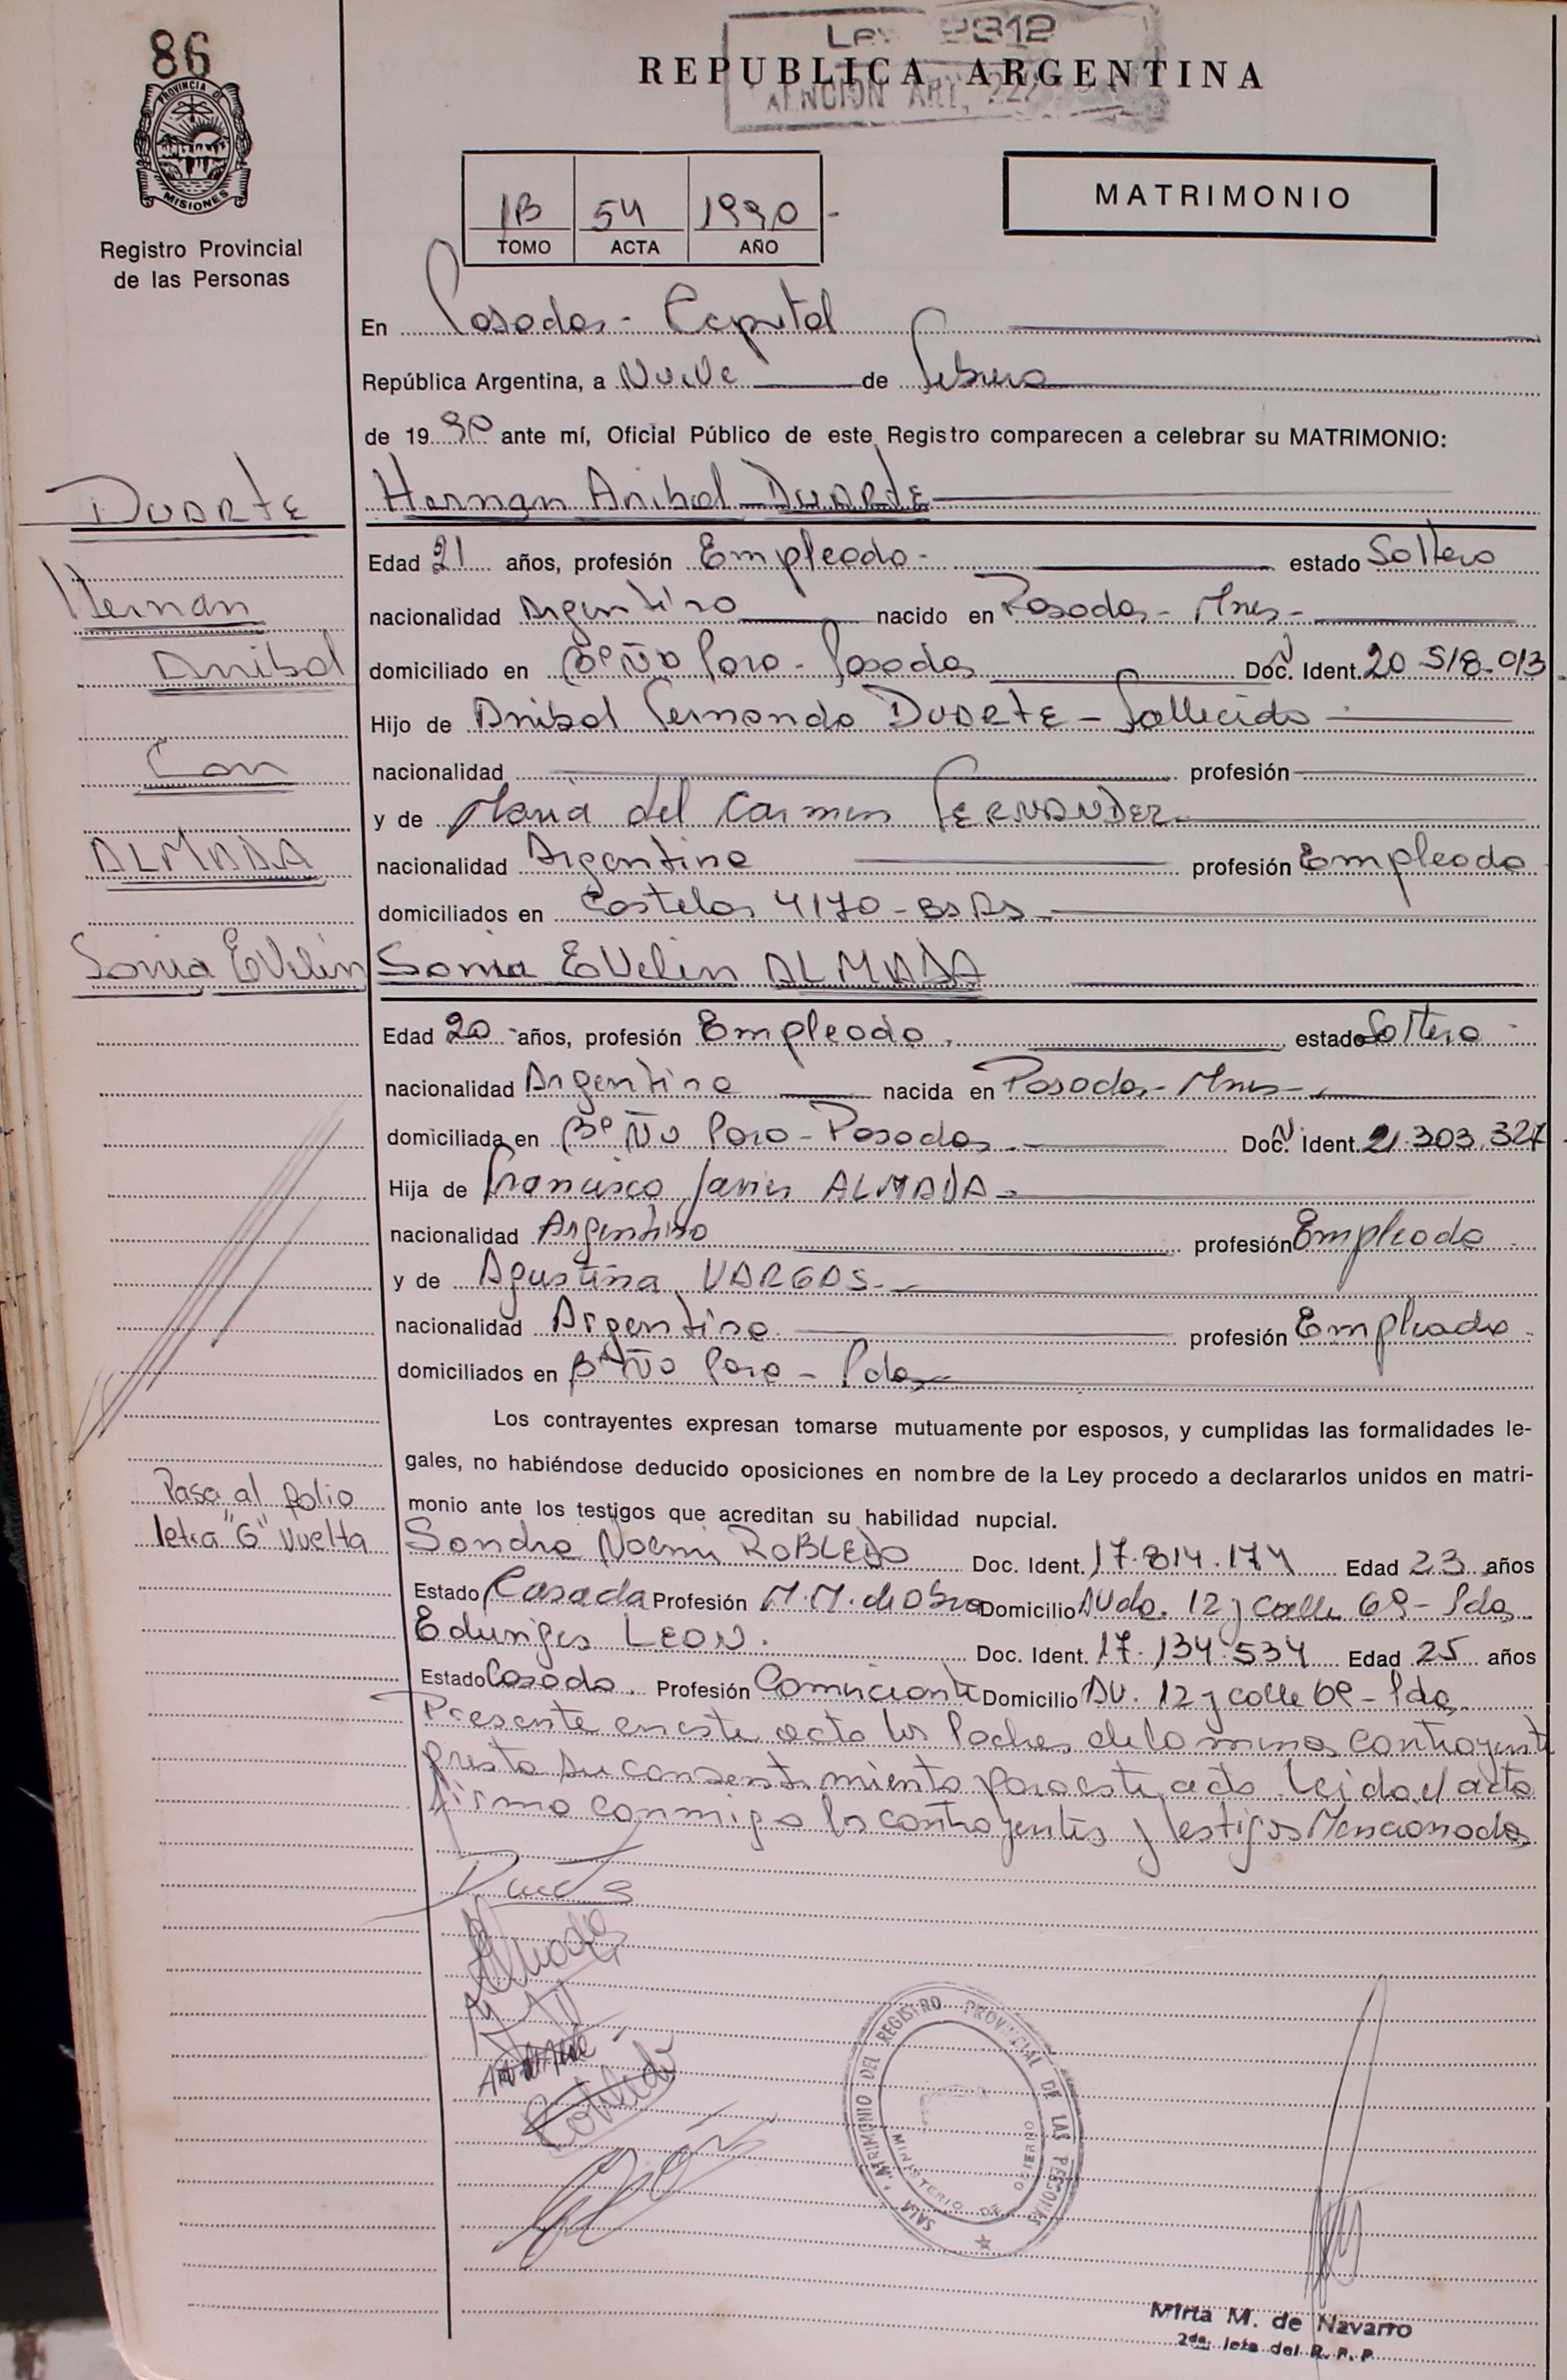 86
Ley 2312
REPUBLICA ARGENTINA
ART. 22
PROVINCIA DE
MISIONES
Registro Provincial
de las Personas
1B 54 1990 -
TOMO ACTA AÑO
MATRIMONIO
En Posadas - Capital
República Argentina, a Nueve de Febrero
de 1990 ante mí, Oficial Público de este Registro comparecen a celebrar su MATRIMONIO:
DUARTE
Hernan Anibal DUARTE
Edad 21 años, profesión Empleado - estado Soltero
Hernan
nacionalidad Argentino nacido en Posadas - Mnes -
Anibal
domiciliado en Bº Ñu Pora - Posadas Doc. Ident. 20.518.013
Hijo de Anibal Fernando DUARTE - Fallecido
Con
nacionalidad profesión
y de Maria del Carmen FERNANDEZ
ALMADA
nacionalidad Argentina profesión Empleada
domiciliados en Castelar 4170 - Bs As
Sonia EVelin
Sonia EVelin ALMADA
Edad 20 años, profesión Empleada. estado Soltera -
nacionalidad Argentina nacida en Posadas - Mnes -
domiciliada en Bº Ñu Pora - Posadas Doc. Ident. 21.303.327
Hija de Francisco Javier ALMADA -
nacionalidad Argentino profesión Empleado -
y de Agustina VARGAS -
nacionalidad Argentina profesión Empleada -
domiciliados en Bº Ñu Pora - Pdas
Los contrayentes expresan tomarse mutuamente por esposos, y cumplidas las formalidades le-
gales, no habiéndose deducido oposiciones en nombre de la Ley procedo a declararlos unidos en matri-
monio ante los testigos que acreditan su habilidad nupcial.
Pasa al folio
letra "G" Vuelta
Sandra Noemi ROBLEDO Doc. Ident. 17.814.174 Edad 23 años
Estado Casada Profesión M.M. de Obra Domicilio AVda. 12 y calle 69 - Pdas.
Eduriges LEON. Doc. Ident. 17.134.534 Edad 25 años
Estado Casado. Profesión Comerciante Domicilio AV. 12 y calle 69 - Pdas
Presente en este acto los Padres de la menor contrayente
presta su consentimiento para este acto. Leida el acta
firma conmigo los contrayentes y testigos Mencionados
Almada
Robledo
SALA MATRIMONIO DEL REGISTRO PROVINCIAL DE LAS PERSONAS
MINISTERIO DE GOBIERNO
Mirta M. de Navarro
2da. Jefa del R. P. P